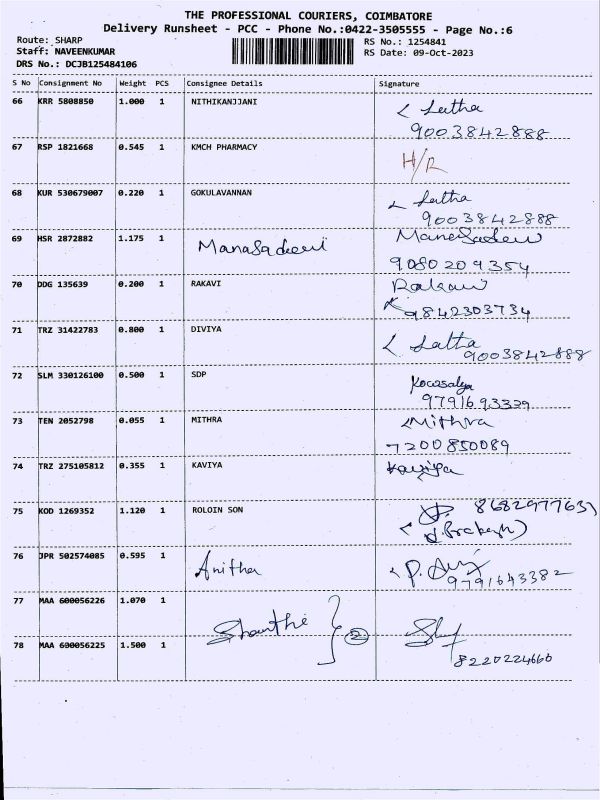 THE PROFESSIONAL COURIERS, COIMBATORE
Delivery Runsheet - PCC - Phone No.:0422-3505555 - Page No.:6
Route: SHARP
RS No.: 1254841
Staff: NAVEENKUMAR
RS Date: 09-Oct-2023
DRS No.: DCJB125484106
S No Consignment No Weight PCS Consignee Details Signature
66 KRR 5808850 1.000 1 NITHIKANJJANI Latha
9003842888
67 RSP 1821668 0.545 1 KMCH PHARMACY H/R
68 KUR 530679007 0.220 1 GOKULAVANNAN Latha
9003842888
69 HSR 2872882 1.175 1 Manasadevi
9080209354
70 DDG 135639 0.200 1 RAKAVI Rakavi
9842303734
71 TRZ 31422783 0.800 1 DIVIYA Latha
9003842888
72 SLM 330126100 0.500 1 SDP Kowsalya
9791693329
73 TEN 2052798 0.055 1 MITHRA Mithra
7200850089
74 TRZ 275105812 0.355 1 KAVIYA Kaviya
75 KOD 1269352 1.120 1 ROLOIN SON 8682977637
76 JPR 502574085 0.595 1 Anitha
9791643382
77 MAA 600056226 1.070 1
Shanthi 2
78 MAA 600056225 1.500 1
8220224660